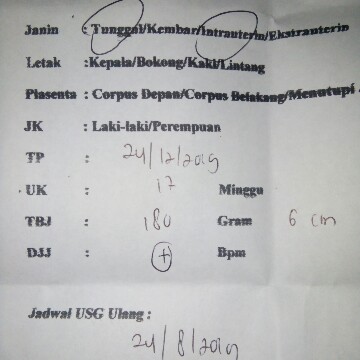 Janin : Tunggal/Kembar/Intrauterin/Ekstrauterin
Letak :Kepala/Bokong/Kaki/Lintang
Plasenta : Corpus Depan/Corpus Belakang/Menutupi
JK : Laki-laki/Perempuan
TP : 24/12/2019
UK : 17 Minggu
TBJ : 180 Gram 6 cm
DJJ : + Bpm
Jadwal USG Ulang :
24/8/2019